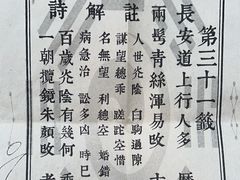 第三十一籤
長安道上行人多
兩鬢青絲渾易改
註
人世光陰 白駒過隙
謀望總乖 蹉跎空惜
解
名無望 利總空 婚錯
病急治 訟多凶 時已
詩
百歲光陰有幾何
一朝攬鏡朱顏改